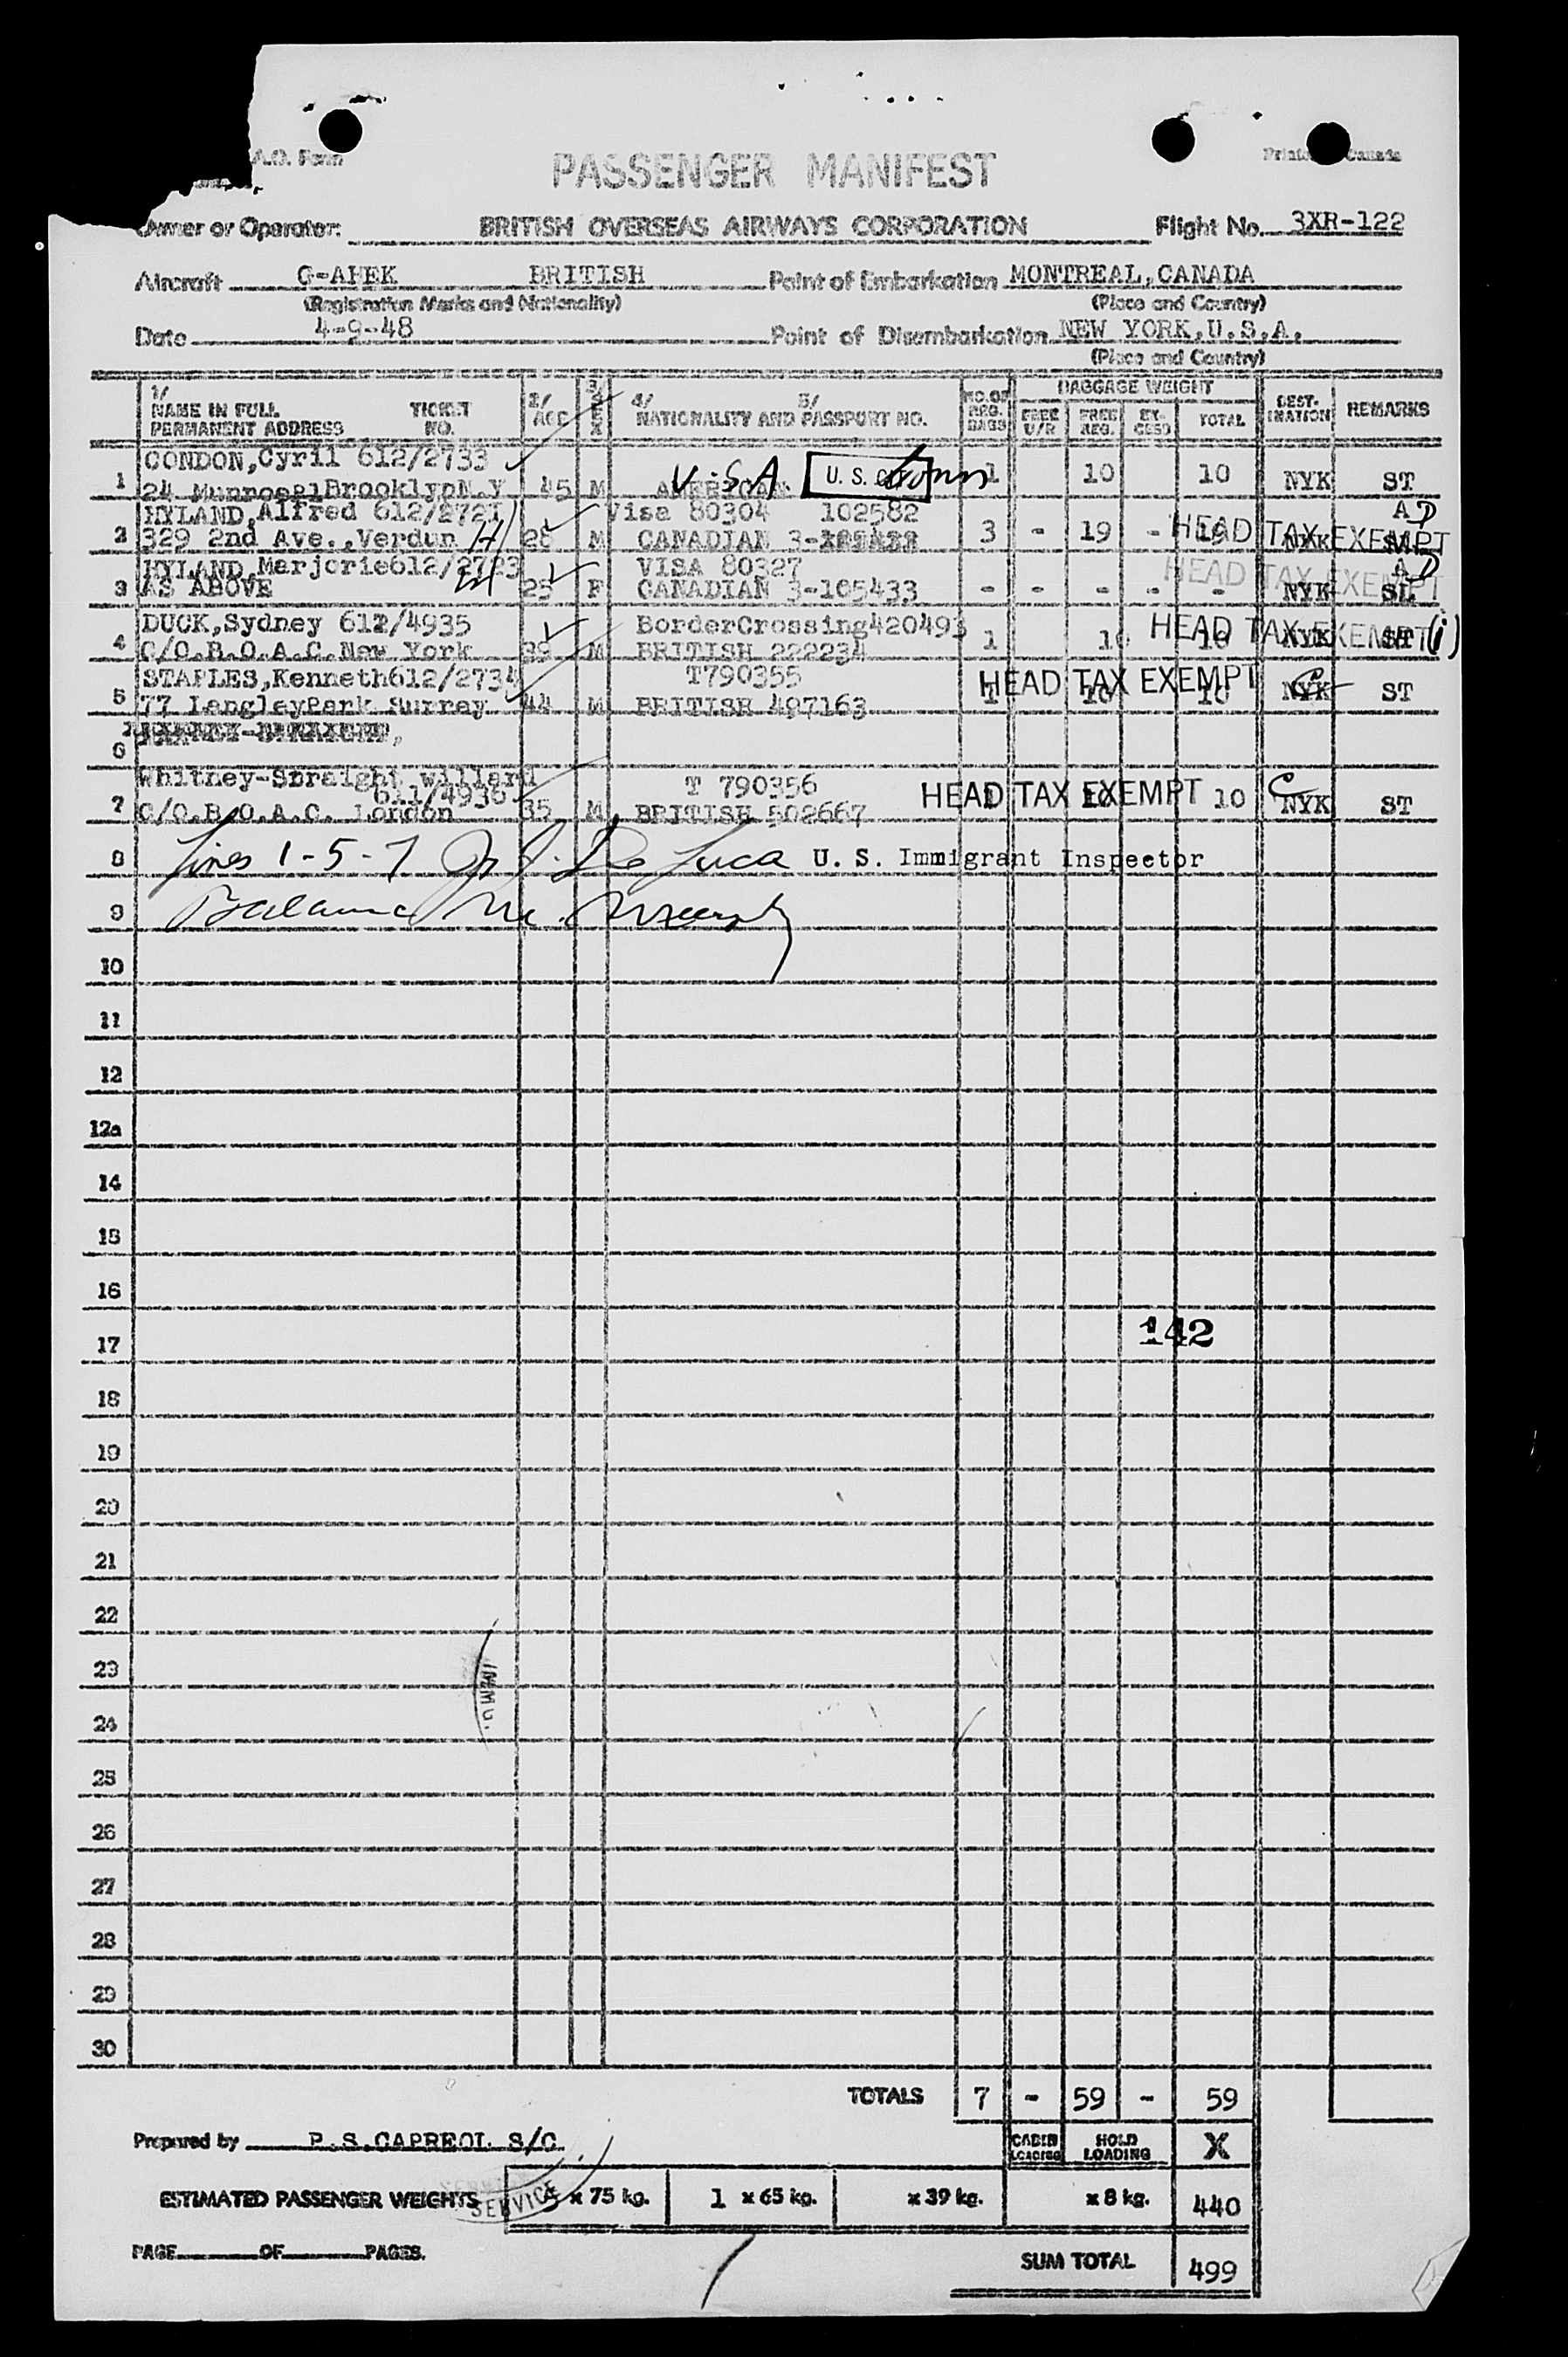 A.O. Form
Canada
PASSENGER MANIFEST
Owner or Operator: BRITISH OVERSEAS AIRWAYS CORPORATION Flight No. 3XR-122
Aircraft G-AHEK BRITISH Point of Embarkation MONTREAL,CANADA
(Registration Marks and Nationality) (Place and Country)
Date 4-9-48 Point of Disembarkation NEW YORK,U.S.A.
(Place and Country)
1/ NAME IN FULL PERMANENT ADDRESS TICKET NO. 2/ AGE 3/ SEX 4/ NATIONALITY AND 5/ PASSPORT NO. NO.OF REG. BAGS BAGGAGE WEIGHT FREE U/R FREE REG. EX-CESS TOTAL DEST-INATION REMARKS
CONDON,Cyril 612/2733
1 Brooklyn N.Y 45 M AMERICAN U.S.A. 1 10 10 NYK ST
HYLAND,Alfred 612/2721 Visa 80304 102582 AD
2 329 2nd Ave.,Verdun H 28 M CANADIAN 3- 3 - 19 - 19 HEAD TAX EXEMPT NYK
HYLAND,Marjorie612/2723 VISA 80327 AD
3 AS ABOVE H 25 F CANADIAN 3-105433 - - - - - HEAD TAX EXEMPT NYK SL
DUCK,Sydney 612/4935 BorderCrossing420493
4 C/O.B.O.A.C.New York 39 M BRITISH 222234 1 10 10 HEAD TAX EXEMPT NYK ST (i)
STAPLES,Kenneth612/2734 T790355
5 77 LangleyPark Surrey 44 M BRITISH 497163 1 10 10 HEAD TAX EXEMPT NYK ST
6
Whitney-Straight willard T 790356
611/4936
7 C/O.B.O.A.C. London 35 M BRITISH 502667 1 10 10 HEAD TAX EXEMPT C NYK ST
8 Lines 1-5-7 De Luca U. S. Immigrant Inspector
9 Balance M. Murphy
10
11
12
12a
14
15
16
17 142
18
19
20
21
22
23 IMMG.
24
25
26
27
28
29
30
TOTALS 7 - 59 - 59
Prepared by P.S.CAPREOL S/C CABIN LOADING HOLD LOADING X
ESTIMATED PASSENGER WEIGHTS SERVICE x 75 kg. 1 x 65 kg. x 39 kg. x 8 kg. 440
PAGE OF PAGES. SUM TOTAL 499